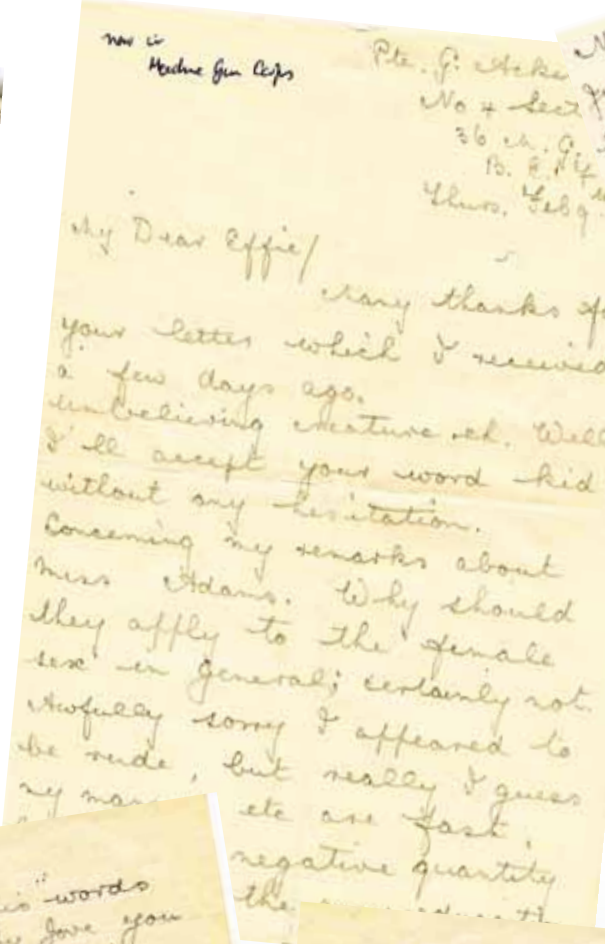 now in
Machine Gun Corps
Pte. G. Acke
No 4 Sect
36 M. G.
B. E. F.
Thurs. Feb 9
My Dear Effie/
Many thanks fo
your letter which I received
a few days ago.
Unbelieving creature eh. Well
I'll accept your word kid
without any hesitation.
Concerning my remarks about
Miss Adams. Why should
they apply to the female
sex in general; certainly not.
Awfully sorry I appeared to
be rude, but really I guess
my etc are fast,
negative quantity
the
words
love you